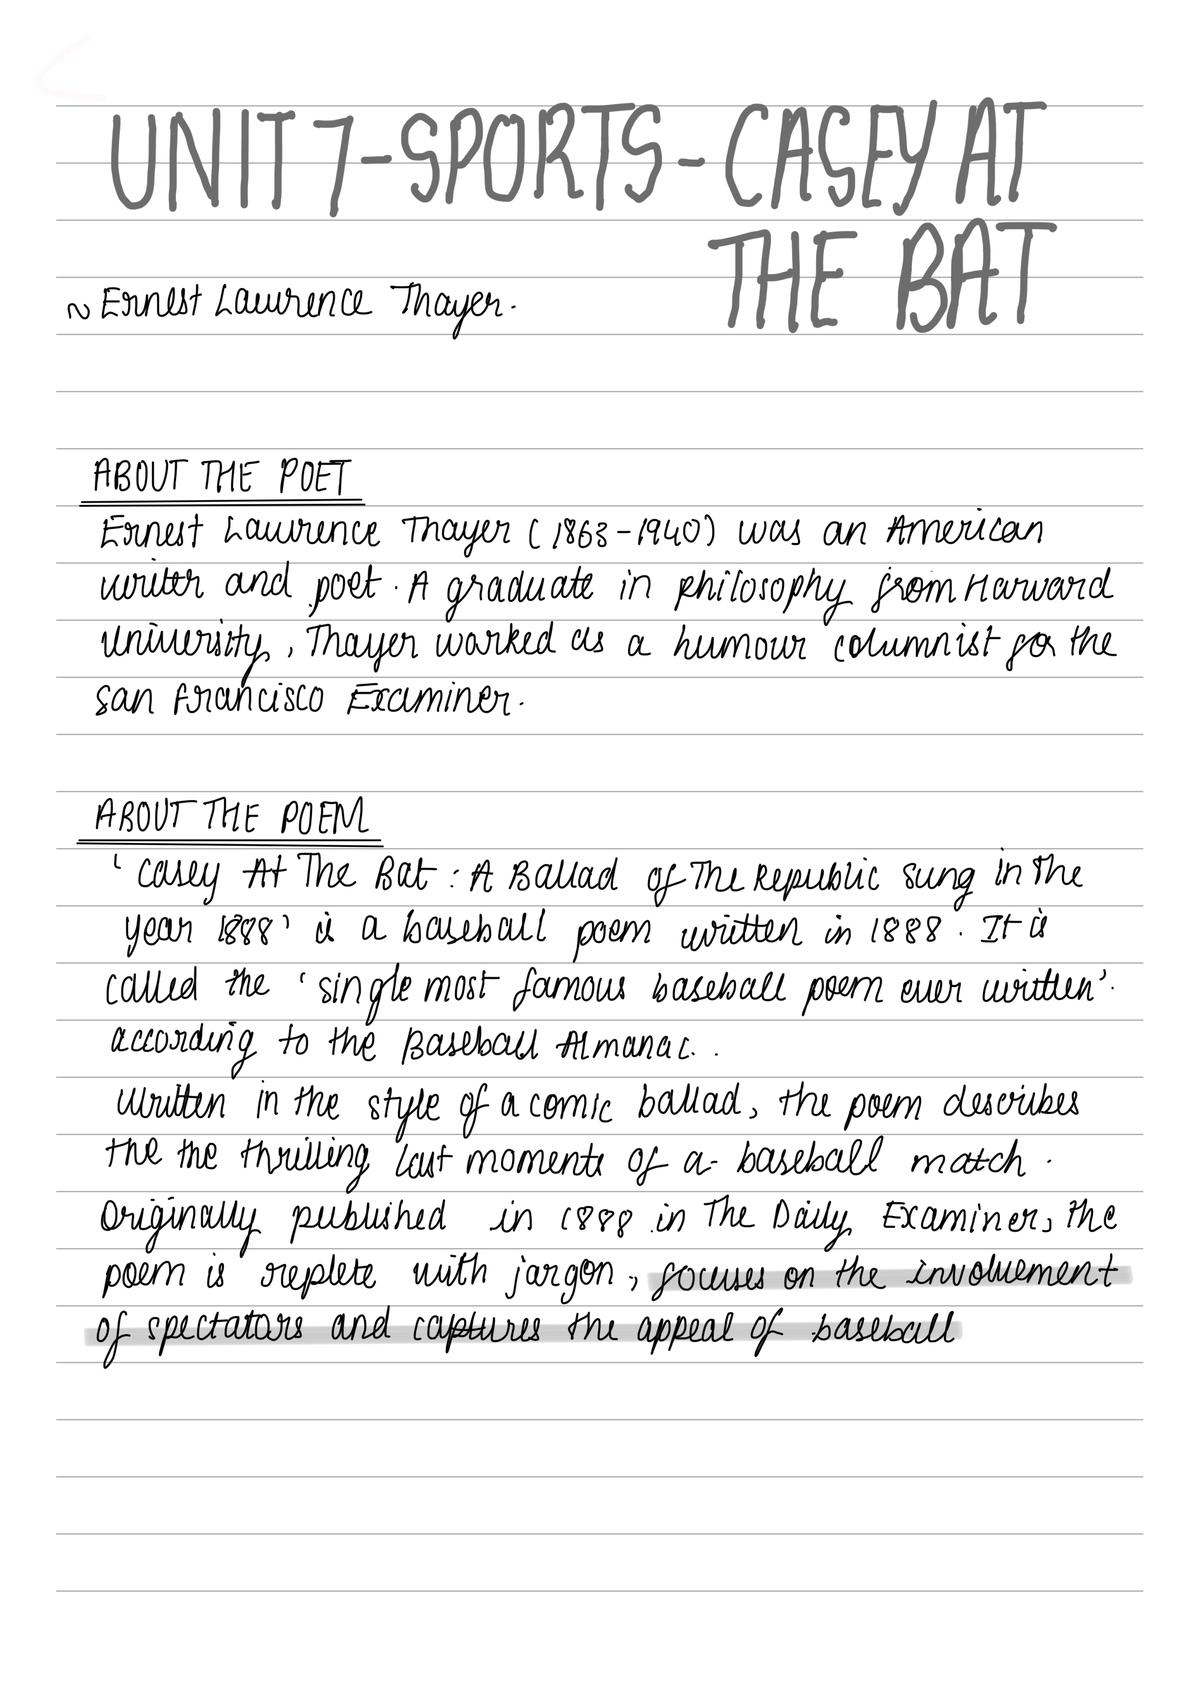 UNIT 7-SPORTS-CASEY AT
THE BAT
~ Ernest Lawrence Thayer.
ABOUT THE POET
Ernest Lawrence Thayer (1863-1940) was an American
writer and poet. A graduate in philosophy from Harward
University, Thayer worked as a humour columnist for the
San Francisco Examiner.
ABOUT THE POEM
'Casey At The Bat : A Ballad of The Republic Sung in The
year 1888' is a baseball poem written in 1888. It is
called the 'single most famous baseball poem ever written'.
according to the Baseball Almanac..
Written in the style of a comic ballad, the poem describes
the the thrilling last moments of a baseball match.
Originally published in 1888 in The Daily Examiner, the
poem is replete with jargon, focuses on the involvement
of spectators and captures the appeal of baseball